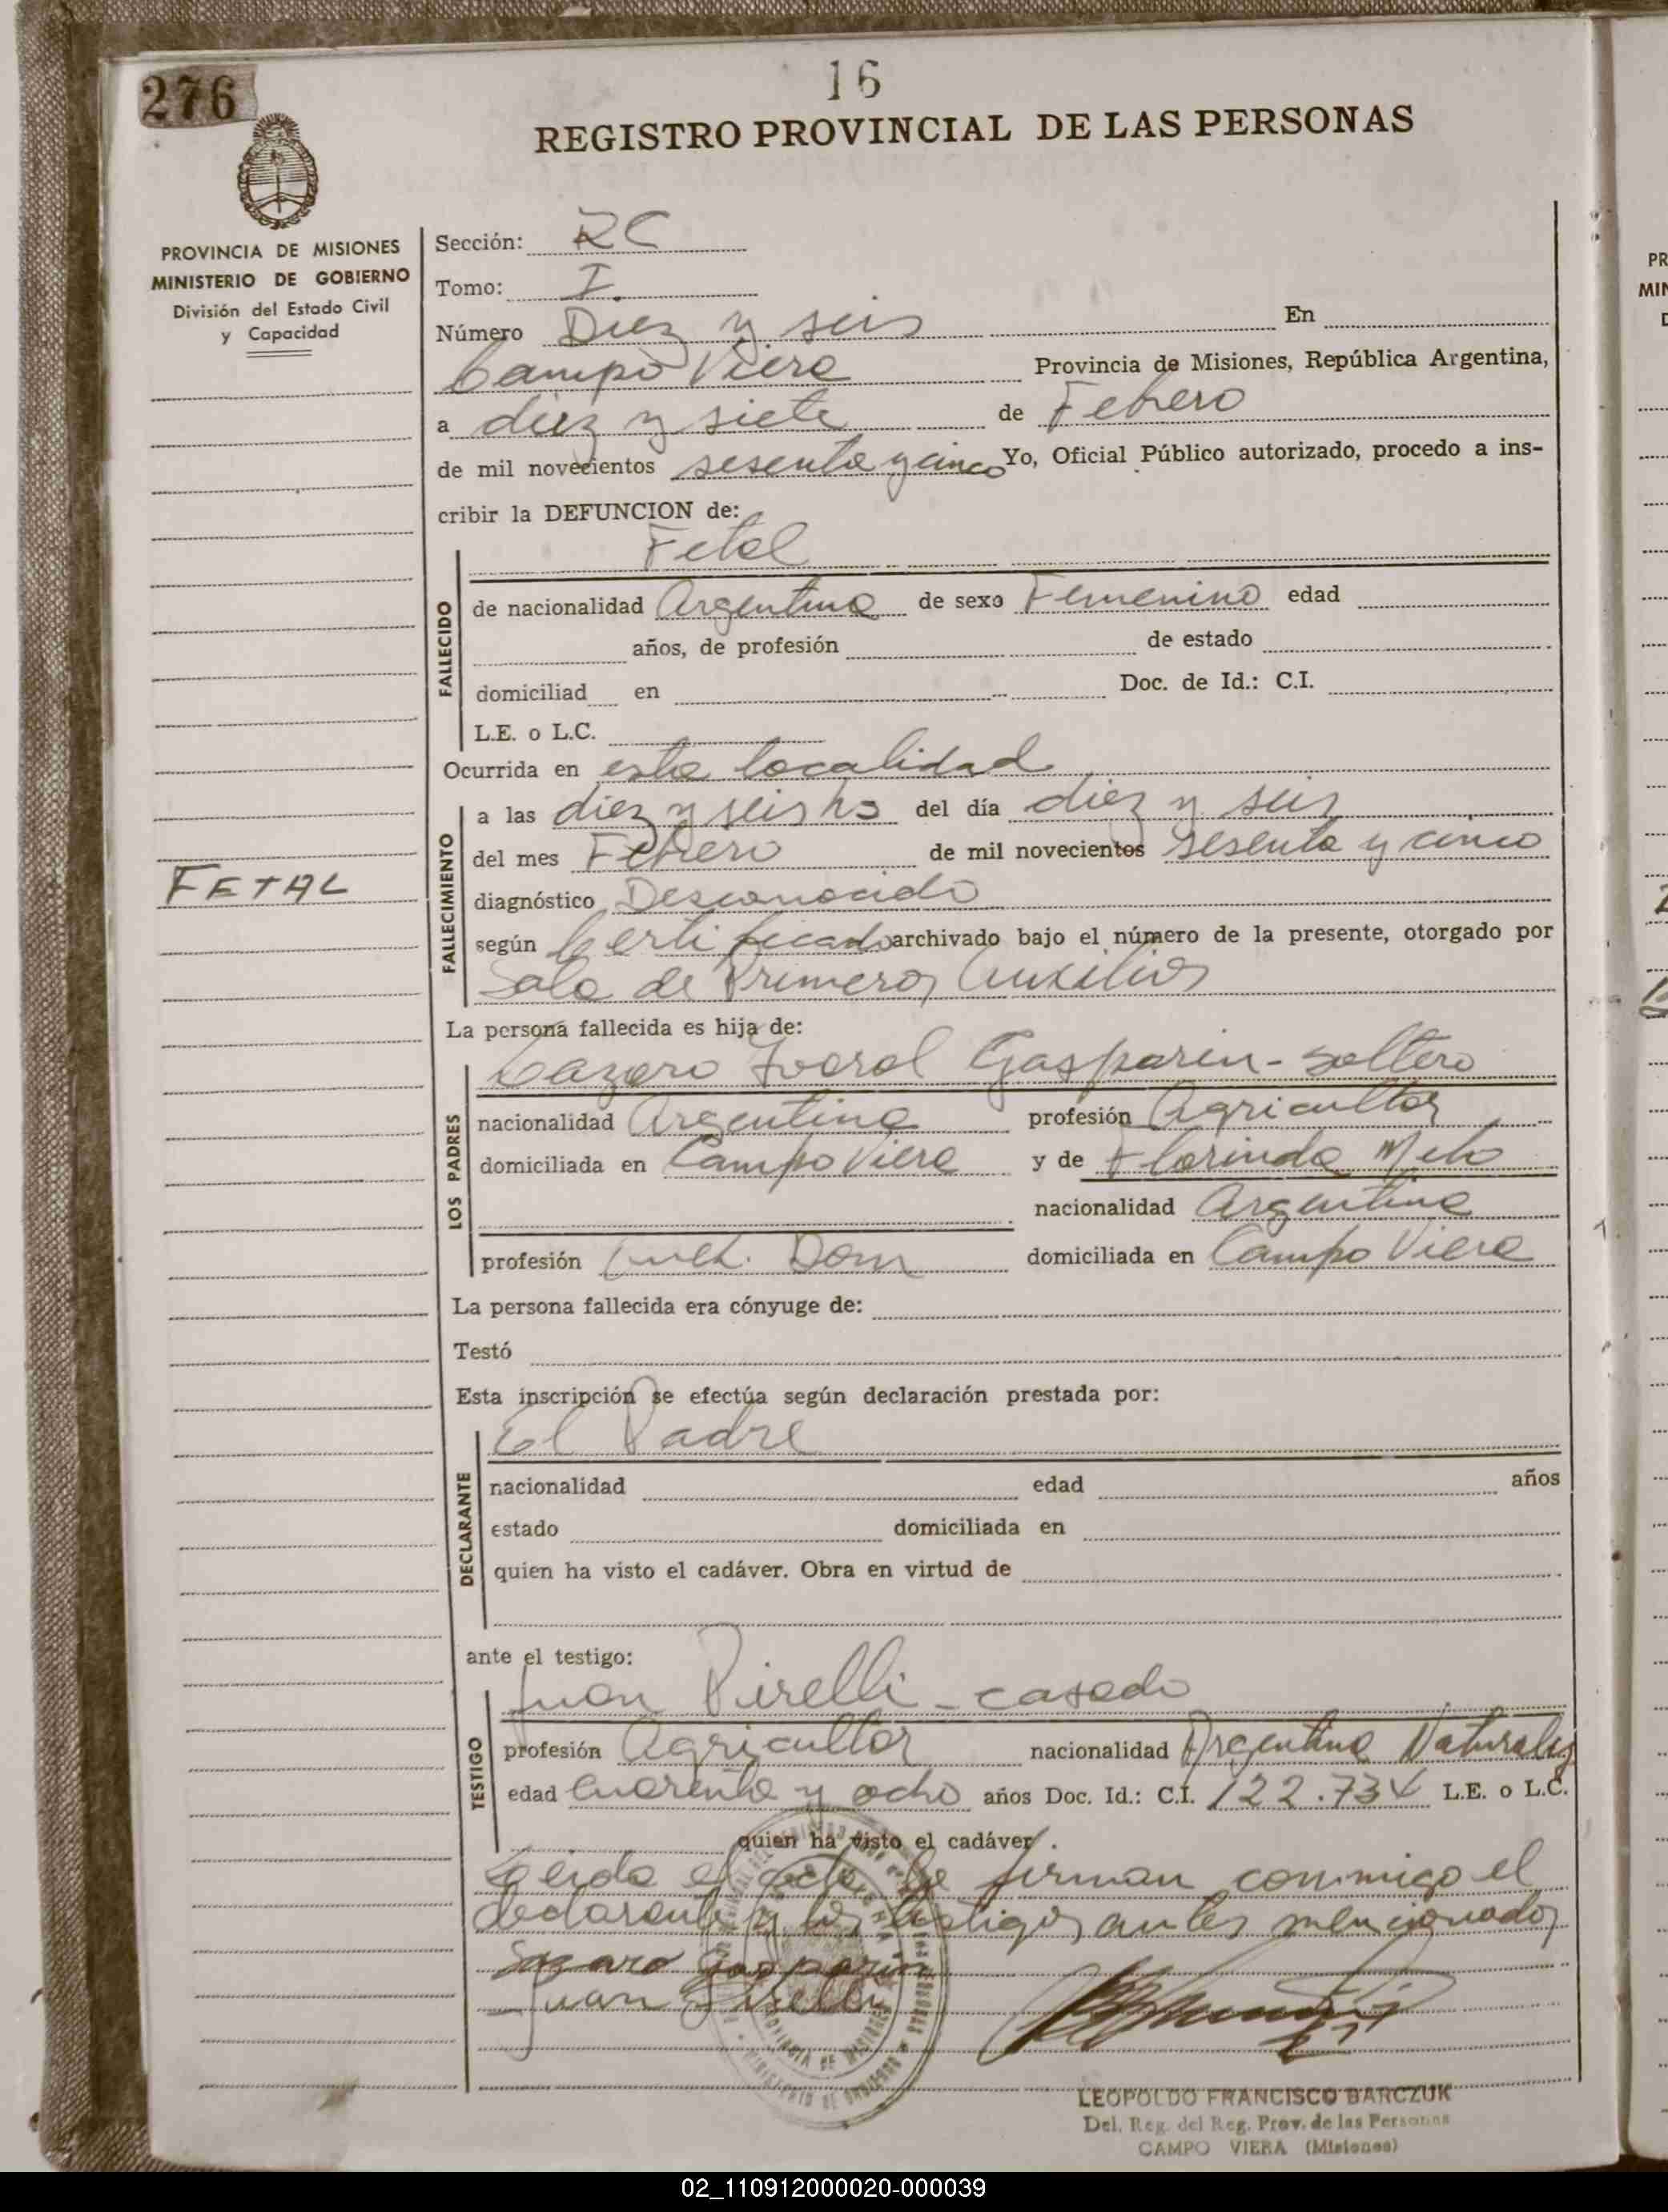 276
16
REGISTRO PROVINCIAL DE LAS PERSONAS
PROVINCIA DE MISIONES
MINISTERIO DE GOBIERNO
División del Estado Civil
y Capacidad
Sección: RC
Tomo: I
Número Diez y seis En
Campo Viera Provincia de Misiones, República Argentina,
a diez y siete de Febrero
de mil novecientos sesenta y cinco Yo, Oficial Público autorizado, procedo a ins-
cribir la DEFUNCION de:
Fetal
FALLECIDO
de nacionalidad Argentina de sexo Femenino edad
años, de profesión de estado
domiciliad en Doc. de Id.: C.I.
L.E. o L.C.
Ocurrida en esta localidad
FALLECIMIENTO
a las diez y seis hs del día diez y seis
del mes Febrero de mil novecientos sesenta y cinco
FETAL
diagnóstico Desconocido
según Certificado archivado bajo el número de la presente, otorgado por
Sala de Primeros Auxilios
La persona fallecida es hija de:
LOS PADRES
Lazaro Gasparin - soltero
nacionalidad Argentina profesión Agricultor
domiciliada en Campo Viera y de Florinda Melo
nacionalidad Argentina
profesión Dom domiciliada en Campo Viera
La persona fallecida era cónyuge de:
Testó
Esta inscripción se efectúa según declaración prestada por:
El Padre
DECLARANTE
nacionalidad edad años
estado domiciliada en
quien ha visto el cadáver. Obra en virtud de
ante el testigo:
Juan Pirelli - casado
TESTIGO
profesión Agricultor nacionalidad Argentino
edad cuarenta y ocho años Doc. Id.: C.I. 122.734 L.E. o L.C.
quien ha visto el cadáver.
Leida el acta la firman conmigo el
declarante y los testigos antes mencionados
Lazaro Gasparin
Juan Pirelli
LEOPOLDO FRANCISCO BARCZUK
Del. Reg. del Reg. Prov. de las Personas
CAMPO VIERA (Misiones)
02_110912000020-000039